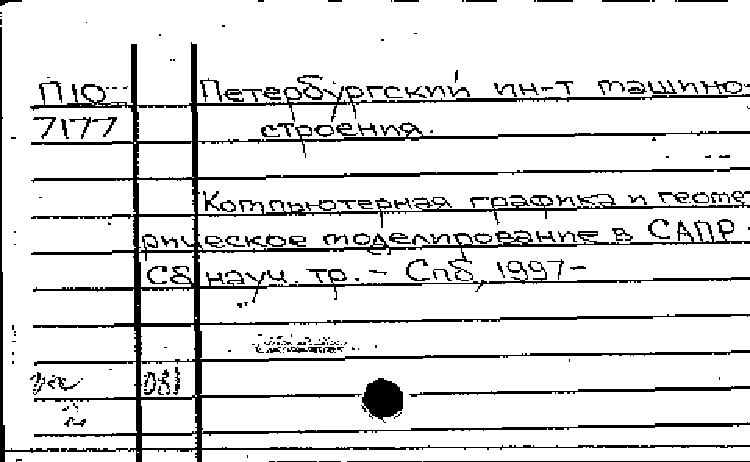 П10 Петербургский ин-т машино-
7177 строения.
Компьютерная графика и геомет
рическое моделирование в САПР.
Сб науч. тр. - Спб, 1997-
081